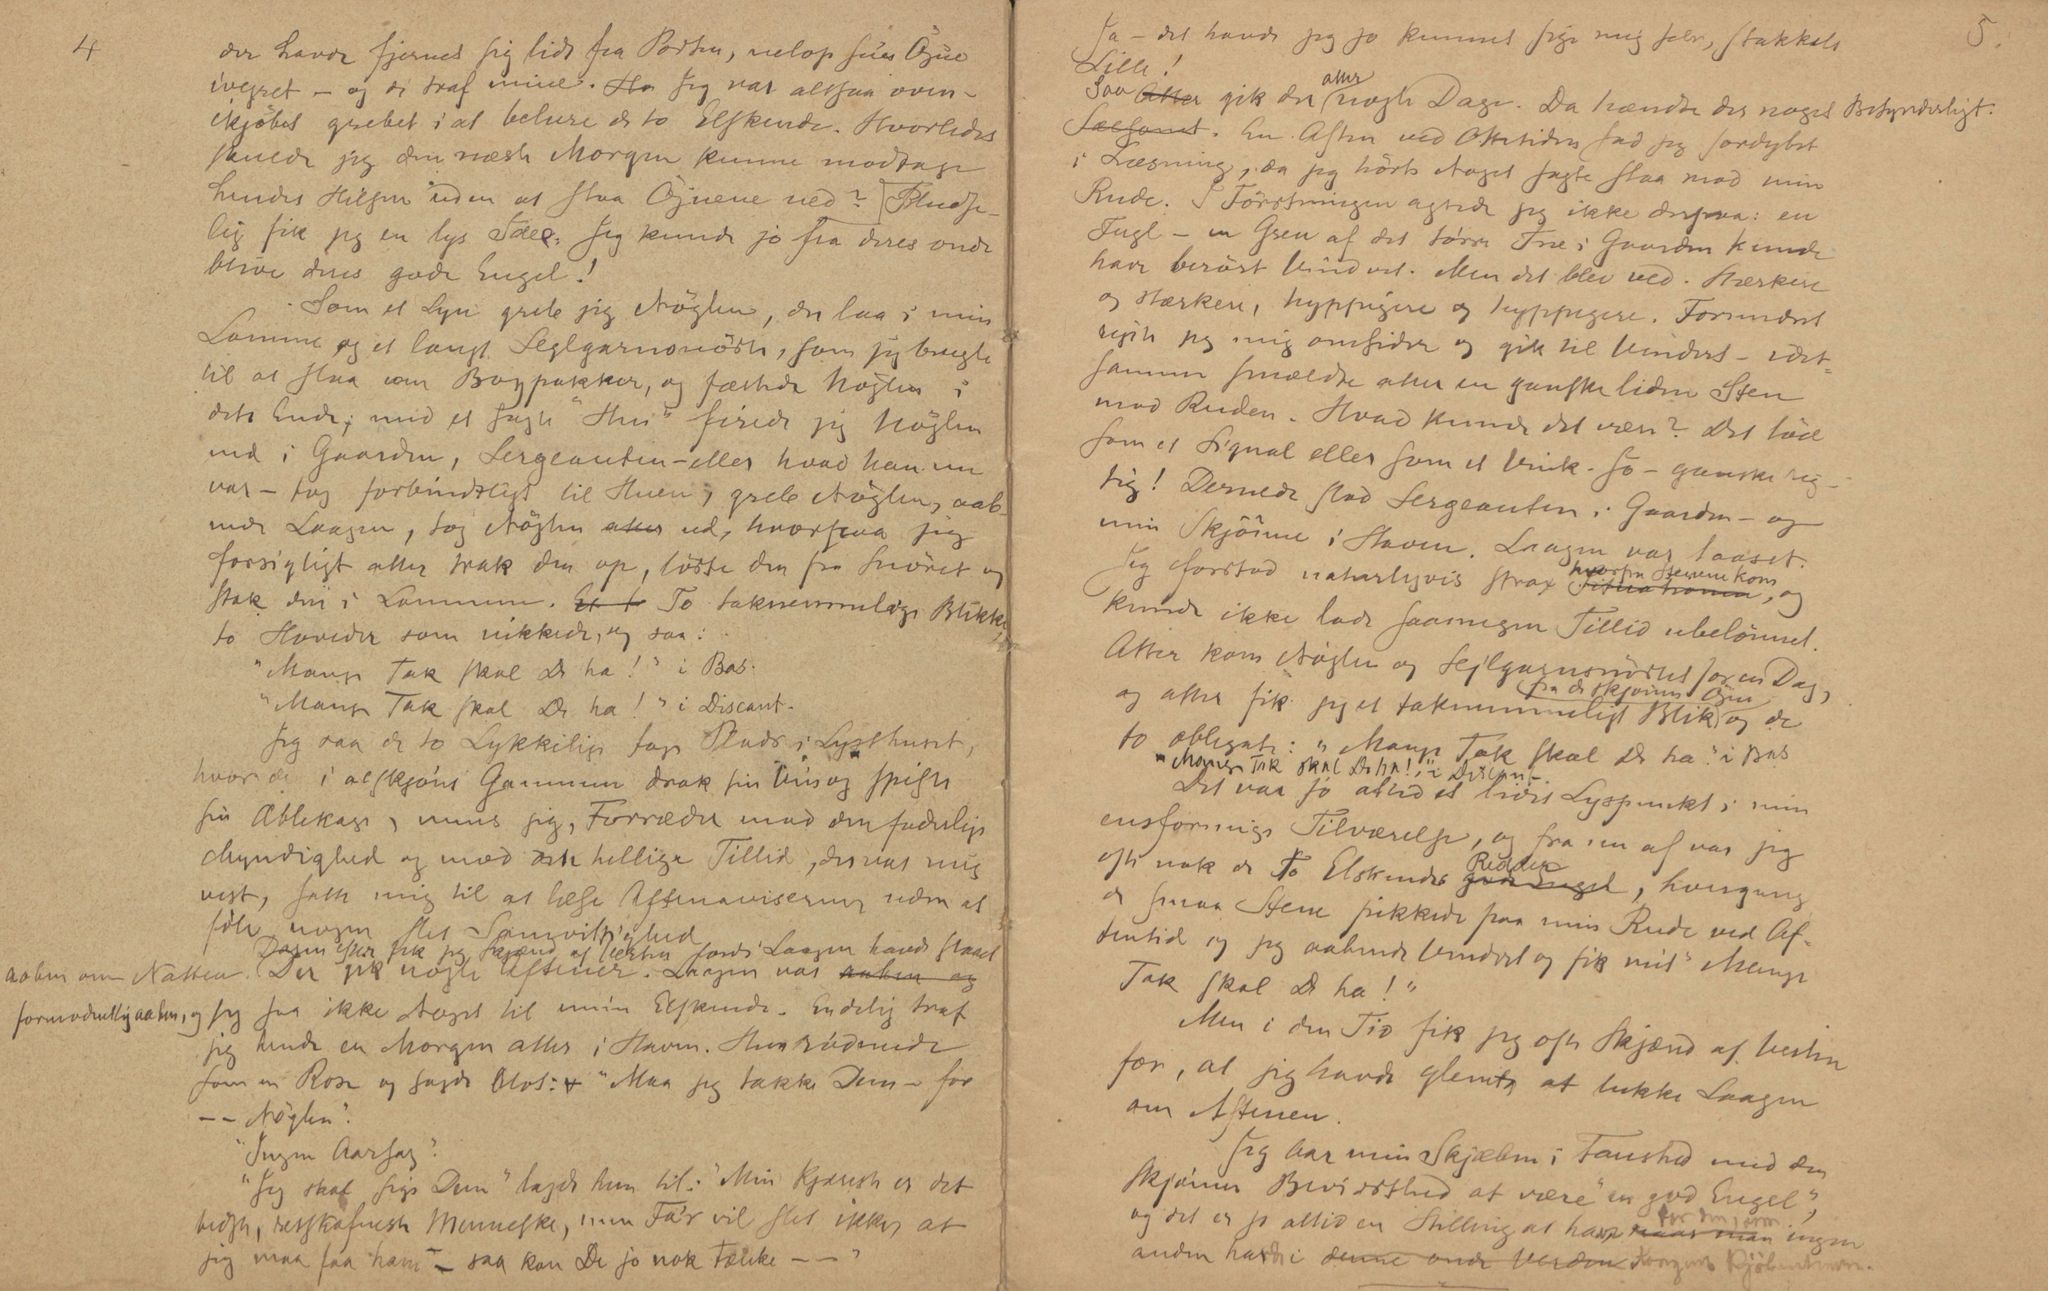 4
der havde fjernet sig lidt fra Porten, netop sine Øjne
ivejret – og de traf mine. Jeg var altsaa oven-
ikjøbet grebet i at belure de to Elskende. Hvorledes
skulde jeg den næste Morgen kunne modtage
hendes Hilsen uden at slaa Øjnene ned? Pludse-
lig fik jeg en lys Idee. Jeg kunde jo fra deres onde
blive deres gode Engel!
Som et Lyn greb jeg Nøglen, der laa i min
Lomme og et langt Seglgarnsnøste, som jeg brugte
til at slaa om Bogpakker, og fæstede Nøglen i
dets Ende; med et sagte "Hm" firede jeg Nøglen
ned i Gaarden, Sergeanten – eller hvad han nu
var – tog forbindtligt til Huen, greb Nøglen, aab-
nede Laagen, tog Nøglen atter ud, hvorpaa jeg
forsigtigt atter trak den op, løste den fra Snøret og
stak den i Lommen. To taknemmelige Blikke,
to Hoveder som nikkede, og saa:
"Mange Tak skal De ha!" i Bas.
"Mange Tak skal De ha!" i Discant.
Jeg saa de to Lykkelige tage Plads i Lysthuset,
hvor de i al skjøns Gammen drak sin Vin og spiste
sin Æblekage, mens jeg, Forræder mod den faderlige
Myndighed og mod den hellige Tillid, der var mig
vist, satte mig til at læse Aftenaviserne uden at
føle nogen slet Samvittighed
Dagen efter fik jeg Skjænd af Værten fordi Laagen havde staaet
aaben om Natten. Der gik nogle Aftener. Laagen var aaben og
formodentlig aaben, og jeg saa ikke Noget til mine Elskende. Endelig traf
jeg hende en Morgen atter i Haven. Hun rødmede
som en Rose og sagde blot: "Maa jeg takke Dem – for
– – Nøglen".
"Ingen Aarsag".
"Jeg skal sige Dem" lagde hun til: "Min Kjæreste er det
bedste, retskafneste Menneske, men Fa'r vil slet ikke, at
jeg maa faa ham – saa kan De jo nok tænke – –"
5.
Ja – det havde jeg jo kunnet sige mig selv, stakkels
Lille!
atter
Saa Atter gik der nogle Dage. Da hændte der noget Besynderligt.
Sælsomt. En Aften ved Ottetiden sad jeg fordybet
i Læsning, da jeg hørte Noget sagte slaa mod min
Rude. I Førstningen agtede jeg ikke derpaa: en
Fugl – en Gren af det tørre Træ i Gaarden kunde
have berørt Vinduet. Men det blev ved. Stærkere
og stærkere, hyppigere og hyppigere. Forundret
rejste jeg mig omsider og gik til Vinduet – idet-
samme smældte atter en ganske liden Sten
mod Ruden. Hvad kunde det være? Det lød
som et Signal eller som et Vink. Jo – ganske rig-
tig! Dernede stod Sergeanten i Gaarden – og
min Skjønne i Haven. Laagen var laaset.
hvorfra Stenene kom
Jeg forstod naturligvis strax Situationen, og
kunde ikke lade saamegen Tillid ubelønnet.
Atter kom Nøglen og Sejlgarnsnøstet for en Dag,
fra de skjønne Øjne
og atter fik jeg et taknemmeligt Blik og de
to obligate: "Mange Tak skal De ha" i Bas
"Mange Tak skal De ha!" i Discant.
Det var jo altid et lidet Lyspunkt i min
ensformige Tilværelse, og fra nu af var jeg
Redder
ofte nok de To Elskendes gode Engel, hvergang
de smaa Stene pikkede paa min Rude ved Af-
tentid og jeg aabnede Vinduet og fik mit "Mange
Tak skal De ha!"
Men i den Tid fik jeg ofte Skjænd af Værten
for, at jeg havde glemt at lukke Laagen
om Aftenen.
Jeg bar min Skjæbne i Taushed med den
skjønne Bevidsthed at være "en god Engel",
for den, som
og det er jo altid en Stilling at have naar man ingen
anden har i denne onde Verden Kongens Kjøbenhavn.